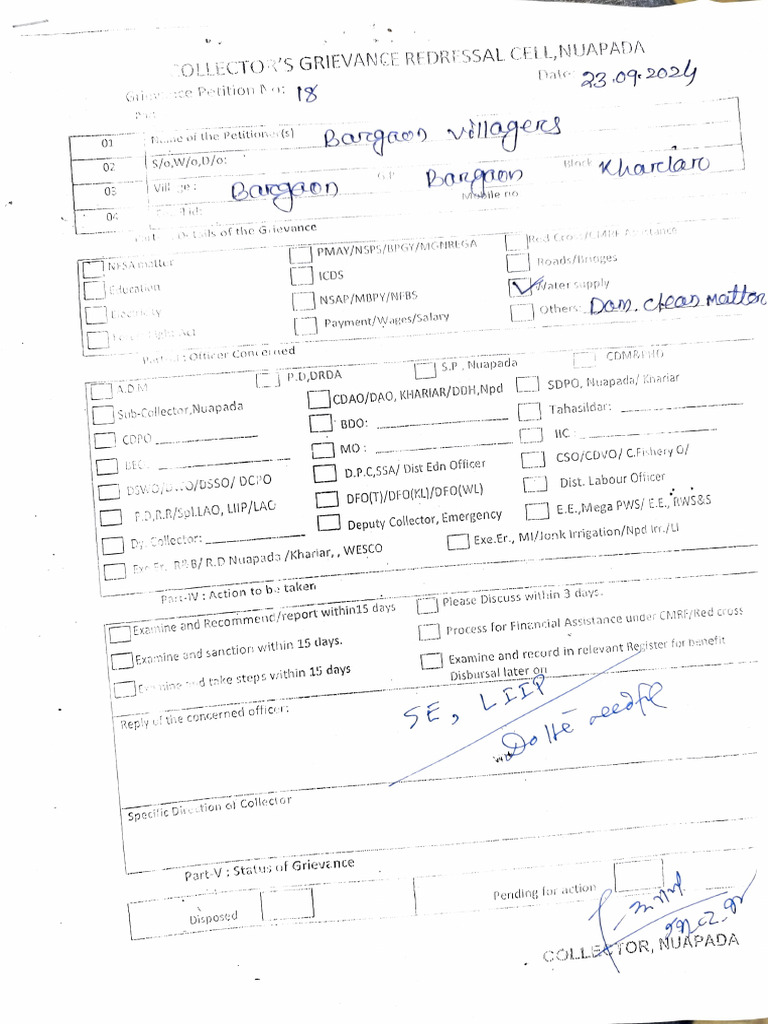 COLLECTOR'S GRIEVANCE REDRESSAL CELL, NUAPADA
Grievance Petition No: 18 Date: 23.09.2024
01 Name of the Petitioner(s) Bargaon villagers
02 S/o,W/o,D/o:
03 Village: Bargaon G.P. Bargaon Block Khariar
04 Mobile no
Details of the Grievance
NFSA matter PMAY/NSPS/BPGY/MGNREGA Red Cross/CMRF Assistance
Education ICDS Roads/Bridges
Electricity NSAP/MBPY/NFBS Water supply
Payment/Wages/Salary Others: Dam. clean matter
: Officer Concerned
A.D.M P.D,DRDA S.P, Nuapada CDM&PHO
Sub-Collector,Nuapada CDAO/DAO, KHARIAR/DDH,Npd SDPO, Nuapada/ Khariar
CDPO BDO: Tahasildar:
BEO MO : IIC
DSWO/DWO/DSSO/ DCPO D.P.C,SSA/ Dist Edn Officer CSO/CDVO/ C.Fishery O/
P.D,R.R/Spl.LAO, LIIP/LAO DFO(T)/DFO(KL)/DFO(WL) Dist. Labour Officer
Dy. Collector: Deputy Collector, Emergency E.E.,Mega PWS/ E.E., RWS&S
Exe.Er. R&B/ R.D Nuapada /Khariar, , WESCO Exe.Er., MI/Jonk Irrigation/Npd Irr./LI
Part-IV : Action to be taken
Examine and Recommend/report within15 days Please Discuss within 3 days.
Examine and sanction within 15 days. Process for Financial Assistance under CMRF/Red cross
Examine and take steps within 15 days Examine and record in relevant Register for benefit
Disbursal later on
Reply of the concerned officer:
SE, LIIP
Do the needful
Specific Direction of Collector
Part-V : Status of Grievance
Disposed Pending for action
COLLECTOR, NUAPADA